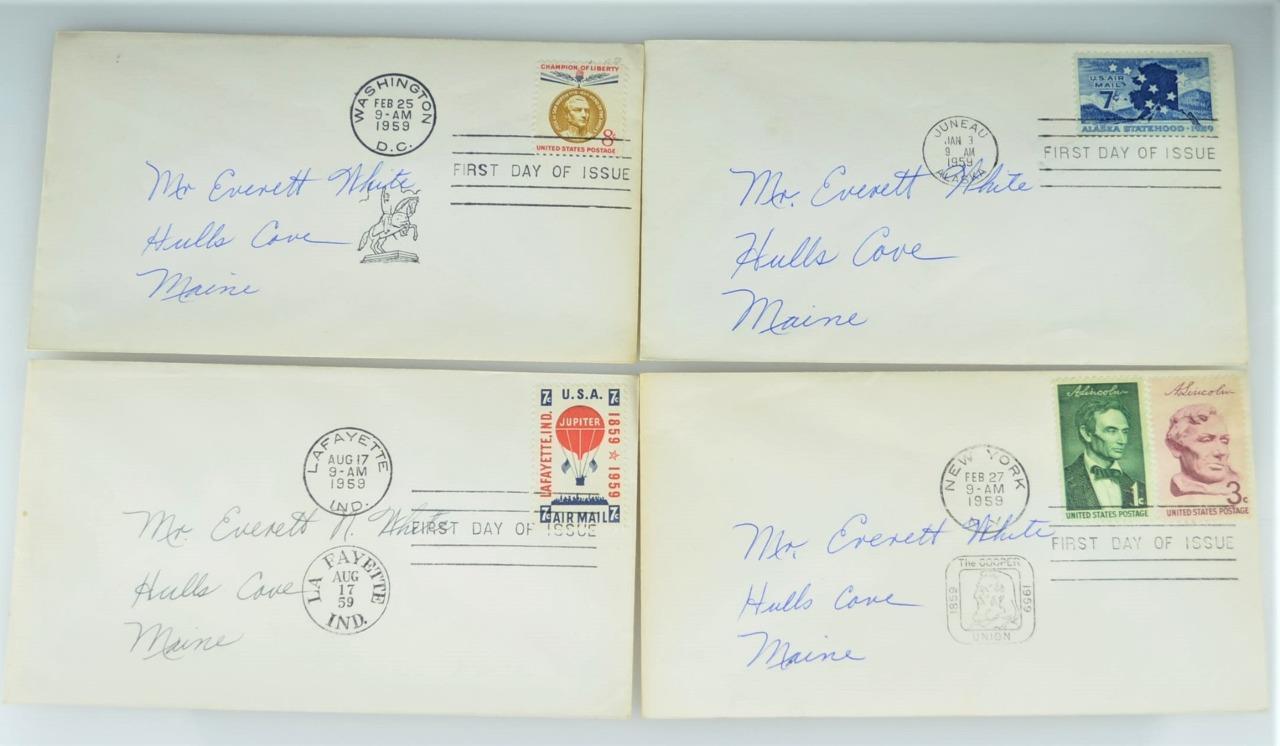 CHAMPION OF LIBERTY
8¢
UNITED STATES POSTAGE
WASHINGTON
FEB 25
9-AM
1959
D.C.
FIRST DAY OF ISSUE
Mr Everett White
Hulls Cove
Maine
U.S. AIR
MAIL
7¢
ALASKA STATEHOOD · 1959
JUNEAU
JAN 3
9 AM
1959
ALASKA
FIRST DAY OF ISSUE
Mr. Everett White
Hulls Cove
Maine
7c U.S.A. 7c
LAFAYETTE, IND.
JUPITER
1859 ★ 1959
7c AIR MAIL 7c
LAFAYETTE
AUG 17
9-AM
1959
IND.
FIRST DAY OF ISSUE
Mr. Everett N. White
Hulls Cove
Maine
LA FAYETTE
AUG
17
59
IND.
A. Lincoln
1c
UNITED STATES POSTAGE
A. Lincoln
3c
UNITED STATES POSTAGE
NEW YORK
FEB 27
9-AM
1959
FIRST DAY OF ISSUE
Mr. Everett White
Hulls Cove
Maine
The COOPER
1859
1959
UNION